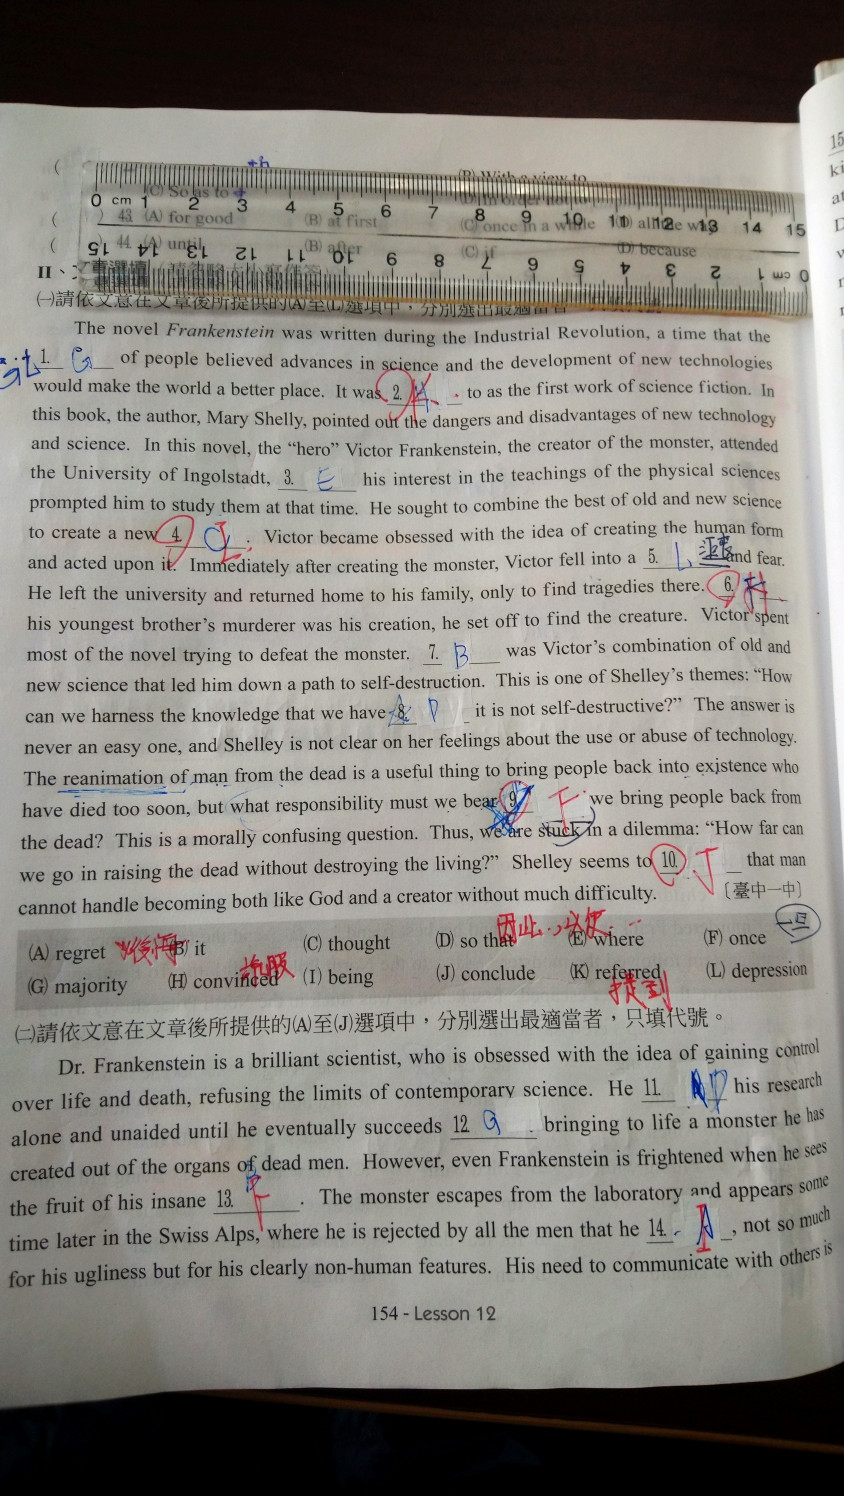 (
(C) So as to
0 cm 1 2 3 4 5 6 7 8 9 10 11 12 13 14 15
( ) 43. (A) for good (B) at first (C) once in a while (D) all the way
( 44. (A) until (B) after (C) if (D) because
15 14 13 12 11 10 9 8 7 6 5 4 3 2 1 cm 0
II、
㈠請依文意在文章後所提供的(A)至(L)選項中,分別選出最適當者
The novel Frankenstein was written during the Industrial Revolution, a time that the
1. G of people believed advances in science and the development of new technologies
would make the world a better place. It was 2. to as the first work of science fiction. In
this book, the author, Mary Shelly, pointed out the dangers and disadvantages of new technology
and science. In this novel, the “hero” Victor Frankenstein, the creator of the monster, attended
the University of Ingolstadt, 3. E his interest in the teachings of the physical sciences
prompted him to study them at that time. He sought to combine the best of old and new science
to create a new 4. . Victor became obsessed with the idea of creating the human form
and acted upon it. Immediately after creating the monster, Victor fell into a 5. L and fear.
He left the university and returned home to his family, only to find tragedies there. 6.
his youngest brother’s murderer was his creation, he set off to find the creature. Victor spent
most of the novel trying to defeat the monster. 7. B was Victor’s combination of old and
new science that led him down a path to self-destruction. This is one of Shelley’s themes: “How
can we harness the knowledge that we have 8. D it is not self-destructive?” The answer is
never an easy one, and Shelley is not clear on her feelings about the use or abuse of technology.
The reanimation of man from the dead is a useful thing to bring people back into existence who
have died too soon, but what responsibility must we bear 9. F we bring people back from
the dead? This is a morally confusing question. Thus, we are stuck in a dilemma: “How far can
we go in raising the dead without destroying the living?” Shelley seems to 10. J that man
cannot handle becoming both like God and a creator without much difficulty. 〔臺中一中〕
(A) regret 後悔 (B) it (C) thought (D) so that 因此 (E) where (F) once 一旦
(G) majority (H) convinced 說服 (I) being (J) conclude (K) referred 提到 (L) depression
㈡請依文意在文章後所提供的(A)至(J)選項中,分別選出最適當者,只填代號。
Dr. Frankenstein is a brilliant scientist, who is obsessed with the idea of gaining control
over life and death, refusing the limits of contemporary science. He 11. his research
alone and unaided until he eventually succeeds 12. G bringing to life a monster he has
created out of the organs of dead men. However, even Frankenstein is frightened when he sees
the fruit of his insane 13. F . The monster escapes from the laboratory and appears some
time later in the Swiss Alps, where he is rejected by all the men that he 14. , not so much
for his ugliness but for his clearly non-human features. His need to communicate with others is
154 - Lesson 12